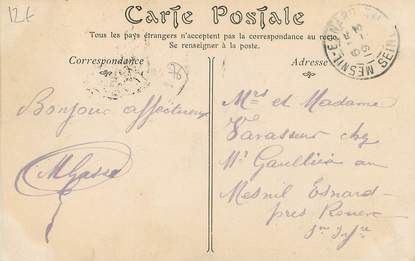 12€
Carte Postale
Tous les pays étrangers n'acceptent pas la correspondance au recto
Se renseigner à la poste.
Correspondance
Adresse
MESNIL-ESNARD SEINE
Bonjour affectueux
Mrs et Madame
Vavasseur chez
Mr Gaultier au
Mesnil Esnard
près Rouen